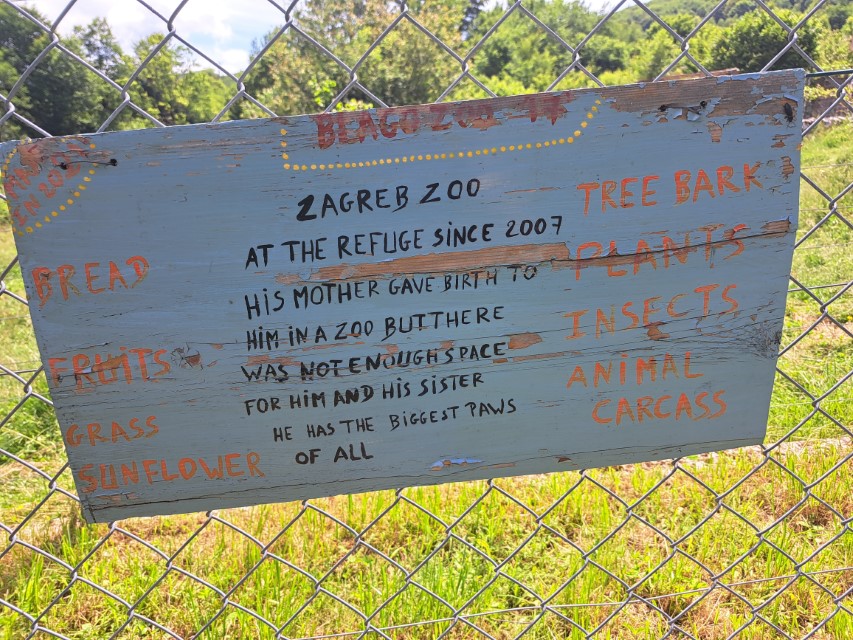 BLAGO ZOO
IN ZOO
ZAGREB ZOO
AT THE REFUGE SINCE 2007
HIS MOTHER GAVE BIRTH TO
HIM IN A ZOO BUT THERE
WAS NOT ENOUGH SPACE
FOR HIM AND HIS SISTER
HE HAS THE BIGGEST PAWS
OF ALL
BREAD
FRUITS
GRASS
SUNFLOWER
TREE BARK
PLANTS
INSECTS
ANIMAL
CARCASS